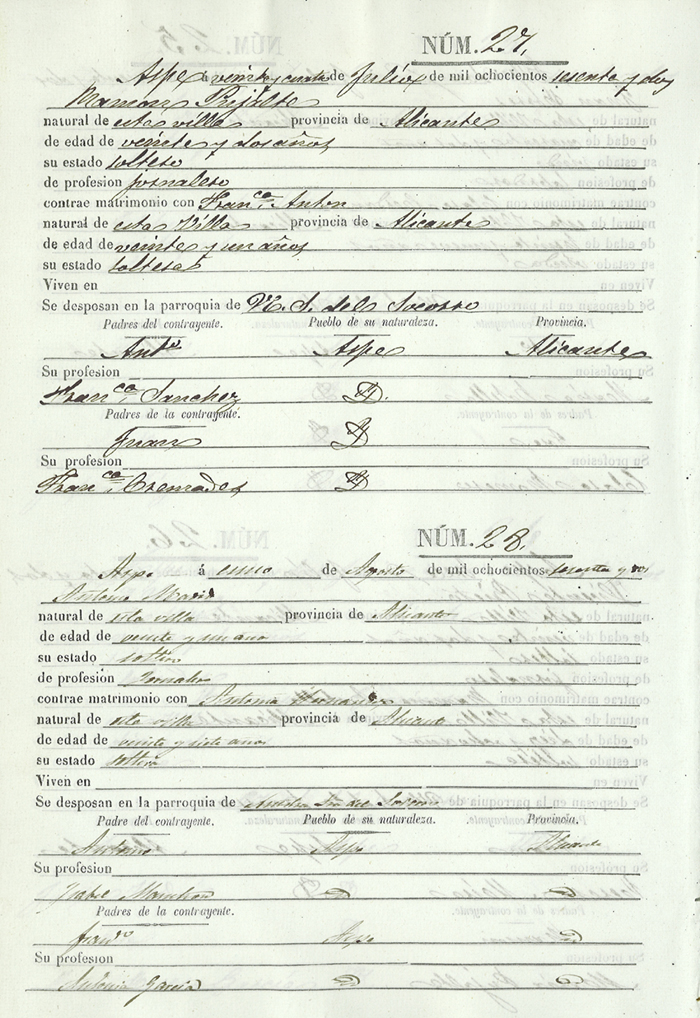 NÚM. 27.
Aspe á veinte y cuatro de Julio de mil ochocientos sesenta y dos
Ramon Pujalte
natural de esta villa provincia de Alicante
de edad de veinte y dos años
su estado soltero
de profesion jornalero
contrae matrimonio con Fran.ca Anton
natural de esta Villa provincia de Alicante
de edad de veinte y un años
su estado soltera
Viven en
Se desposan en la parroquia de N. S. del Socorro
Padres del contrayente. Pueblo de su naturaleza. Provincia.
Ant.o Aspe Alicante
Su profesion
Fran.ca Sanchez D.
Padres de la contrayente.
Juan D
Su profesion
Fran.ca Cremades D
NÚM. 28.
Aspe á cinco de Agosto de mil ochocientos sesenta y dos
Antonio
natural de esta villa provincia de Alicante
de edad de veinte y un año
su estado soltero
de profesion Jornalero
contrae matrimonio con Antonia Hernandez
natural de esta villa provincia de Alicante
de edad de veinte y siete años
su estado soltera
Viven en
Se desposan en la parroquia de Nuestra Sra del Socorro
Padre del contrayente. Pueblo de su naturaleza. Provincia.
Antonio Aspe Alicante
Su profesion
Isabel
Padres de la contrayente.
Fran.co Aspe
Su profesion
Antonia Garcia